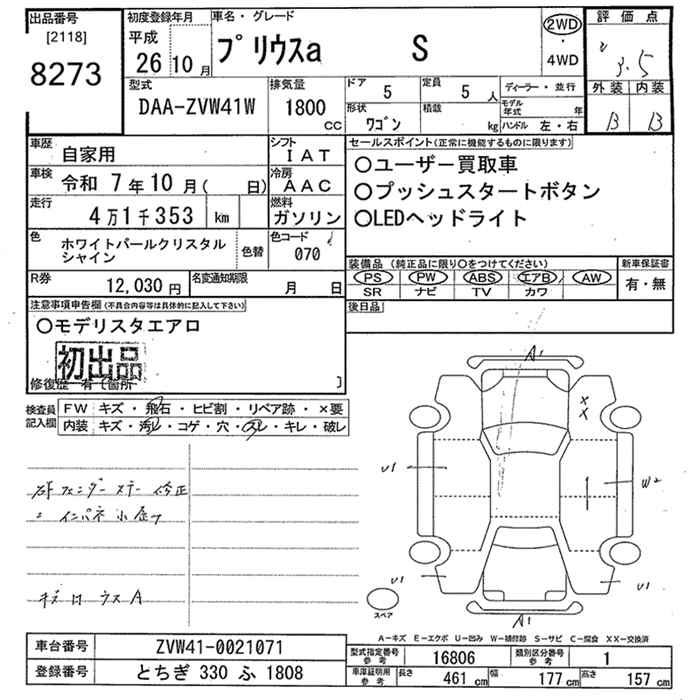 出品番号
[2118]
8273
初度登録年月
平成
26 10 月
車名・グレード
プリウスa S
2WD
・
4WD
評価点
3.5
外装 内装
B B
型式
DAA-ZVW41W
排気量
1800
CC
ドア
5
定員
5 人
形状
ワゴン
積載
kg
ディーラー・並行
モデル年式 年
ハンドル 左・右
車歴
自家用
シフト
IAT
車検
令和 7年10月( 日)
冷房
AAC
走行
4万1千353 km
燃料
ガソリン
色
ホワイトパールクリスタル
シャイン
色替
色コード
070
R券
12,030 円
名変通知期限
月 日
セールスポイント(正常に機能するものに限ります)
○ユーザー買取車
○プッシュスタートボタン
○LEDヘッドライト
装備品 (純正品に限り○をつけてください)
PS PW ABS エアB AW
SR ナビ TV カワ
新車保証書
有・無
後日品
注意事項申告欄(不具合内容等は具体的に記入して下さい)
○モデリスタエアロ
初出品
修復歴 有 (箇所 )
検査員
記入欄
FW キズ・飛石・ヒビ割・リペア跡・×要
内装 キズ・汚レ・コゲ・穴・スレ・キレ・破レ
フェンダー ステー 修正
インパネ 小
A1
×
×
U1
W2
U1
U1
A1
スペア
A-キズ E-エクボ U-凹み W-補修跡 S-サビ C-腐食 XX-交換済
車台番号
ZVW41-0021071
登録番号
とちぎ 330 ふ 1808
型式指定番号
参考
16806
類別区分番号
参考
1
車庫証明用
参考
長さ
461 cm
幅
177 cm
高さ
157 cm